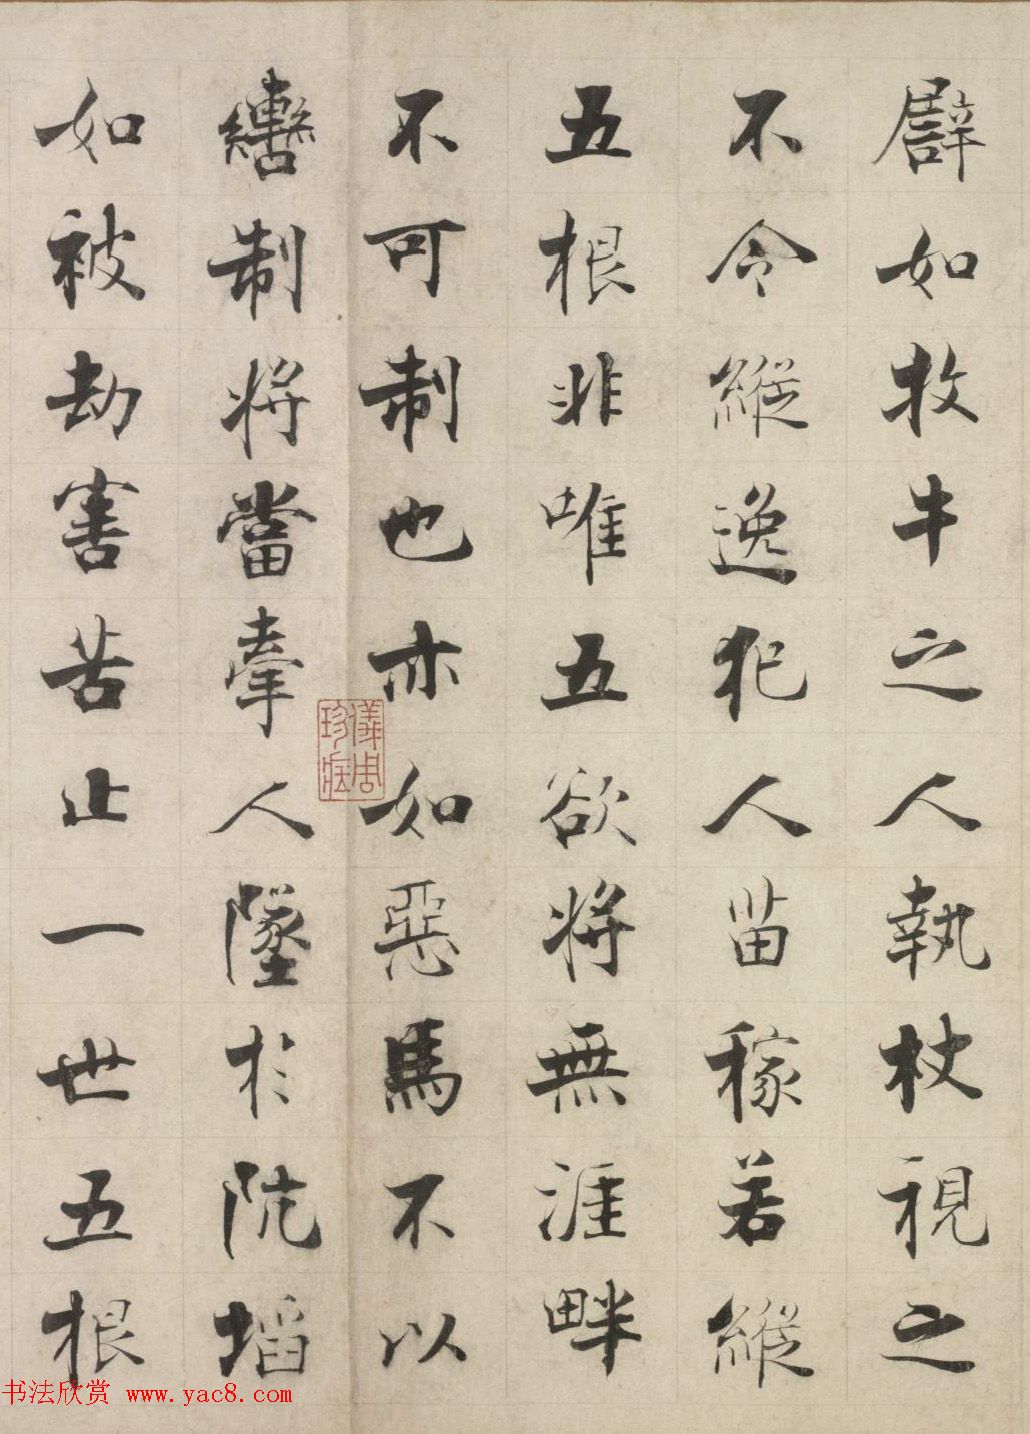 譬如牧牛之人執杖視之
不令縱逸犯人苗稼若縱
五根非唯五欲將無涯畔
不可制也亦如惡馬不以
轡制將當牽人墜於阬埳
如被劫害苦止一世五根
儀周珍藏
书法欣赏 www.yac8.com